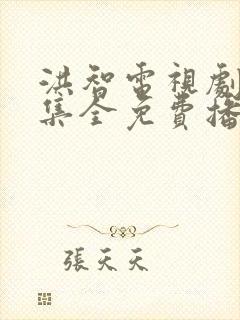 洪智電視劇
集全免費播
張天天